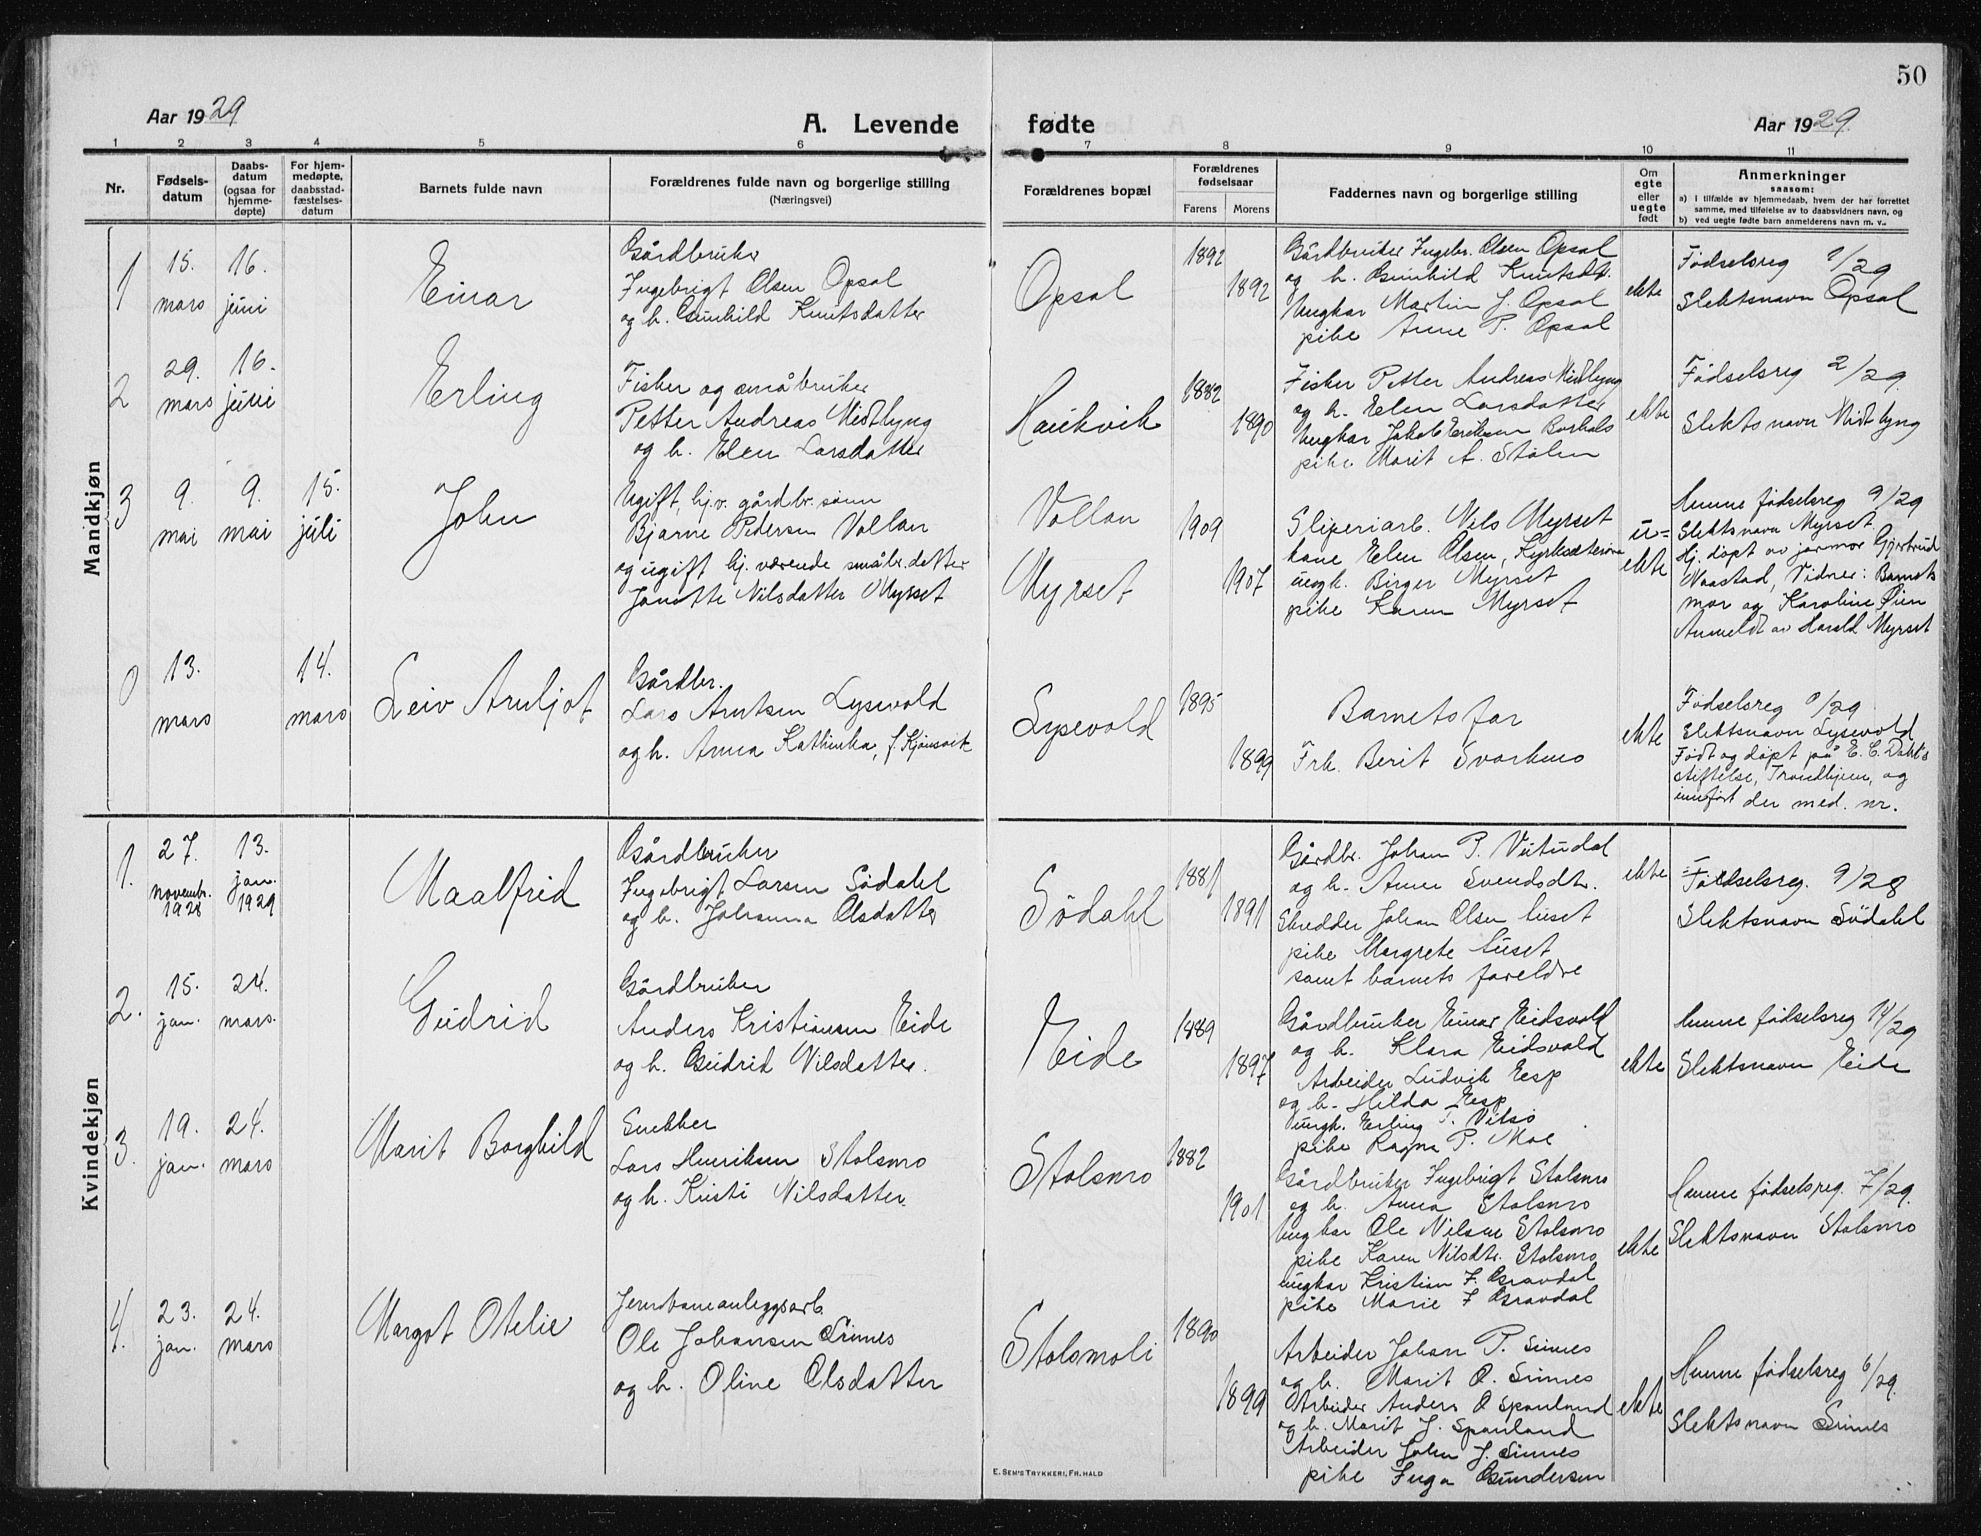 50
Aar 1929
A. Levende fødte
Aar 1929.
1 2 3 4 5 6 7 8 9 10 11
Nr.
Fødsels-
datum
Daabs-
datum
(ogsaa for
hjemme-
døpte)
For hjem-
medøpte,
daabsstad-
fæstelses-
datum
Barnets fulde navn
Forældrenes fulde navn og borgerlige stilling
(Næringsvei)
Forældrenes bopæl
Forældrenes
fødselsaar
Farens Morens
Faddernes navn og borgerlige stilling
Om
egte
eller
uegte
født
Anmerkninger
saasom:
a) i tilfælde av hjemmedaab, hvem der har forrettet
samme, med tilføielse av to daabsvidners navn, og
b) ved uegte fødte barn anmelderens navn m. v..
Mandkjøn
1
15.
mars
16.
juni
Einar
Gårdbruker
Ingebrigt Olsen Opsal
og h. Gunhild Knutsdatter
Opsal
1892
1892
Gårdbruker Ingebr. Olsen Opsal
og h. Gunhild Knutsdtr.
Ungkar Martin J. Opsal
pike Anne P. Opsal
ekte
Fødselsreg 1/29
Slektsnavn Opsal
2
29.
mars
16.
juni
Erling
Fisker og småbruker
Petter Andreas Midtlyng
og h. Elen Larsdatter
Haukvik
1882
1890
Fisker Petter Andreas Midtlyng
og h. Elen Larsdatter
Ungkar Jakob Eriksen Borhals
pike Marit A. Stølen
ekte
Fødselsreg 2/29.
Slektsnavn Midtlyng
3
9.
mai
9.
mai
15.
juli
John
Ugift, hj.v. gårdbr. sønn
Bjarne Pedersen Vollan
og ugift hj. værende småbr. datter
Janette Nilsdatter Myrset
Vollan
Myrset
1909
1907
Sliperiarb. Nils Myrset
kone Elen Olsen, Kyrksæterøra
ungk. Birger Myrset
pike Karen Myrset
u=
ekte
Hemne fødselsreg 9/29
Slektsnavn Myrset.
Hj. døpt av jormor Gjertrud
Vaastad, Vidner: Barnets
mor og Karoline Øien
Anmeldt av Harald Myrset
0
13.
mars
14.
mars
Leiv Arnljot
Gårdbr.
Lars Arntsen Lysevold
og h. Anna Kathinka, f. Kjønsvik
Lysevold
1895
1899
Barnets far
Frk. Berit Svorkmo
ekte
Fødselsreg 0/29
Slektsnavn Lysevold
Født og døpt på E. C. Dahl's
stiftelse, Trondhjem, og
innført der med nr.
Kvindekjøn
1.
27.
novembr.
1928
13.
jan.
1929
Maalfrid
Gårdbruker
Ingebrigt Larsen Södahl
og h. Johanna Olsdatter
Södahl
1881
1891
Gårdbr. Johan P. Vitudal
og h. Anne Svendsdtr.
Skredder Johan Olsen Luset
pike Margrete Luset
samt barnets foreldre
ekte
Fødselsreg. 9/28
Slektsnavn Södahl
2.
15.
jan.
24.
mars.
Gudrid
Gårdbruker
Anders Kristiansen Eide
og h. Gudrid Nilsdatter.
Eide
1889
1897
Gårdbruker Einar Eidsvold
og h. Klara Eidsvold
Arbeider Ludvik Eesp
og h. Hilda Eesp
Ungk. Erling T. Vilsø
pike Ragna P. Moe
ekte
Hemne fødselsreg 14/29
Slektsnavn Eide
3.
19.
jan.
24.
mars
Marit Borghild
Snekker
Lars Henriksen Stolsmo
og h. Kristi Nilsdatter.
Stolsmo
1882
1901
Gårdbruker Ingebrigt Stolsmo
og h. Anna Stolsmo
Ungkar Ole Nilsen Stolsmo
pike Karen Nilsdtr. Stolsmo
ungkar Kristian F. Gravdal
pike Marie F Gravdal
ekte
Hemne fødselsreg. 7/29.
Slektsnavn Stolsmo
4.
23.
jan.
24.
mars
Margot Otelie
Jernbaneanleggsarb.
Ole Johansen Sinnes
og h. Oline Olsdatter
Stolsmoli
1890
1899
Arbeider Johan P. Sinnes
og h. Marit O. Sinnes
Arbeider Anders O Spanland
og h. Marit J. Spanland
Arbeider John J. Sinnes
pike Inga Gundersen
ekte
Hemne fødselsreg 6/29.
Slektsnavn Sinnes
E. SEM'S TRYKKERI, FR.HALD